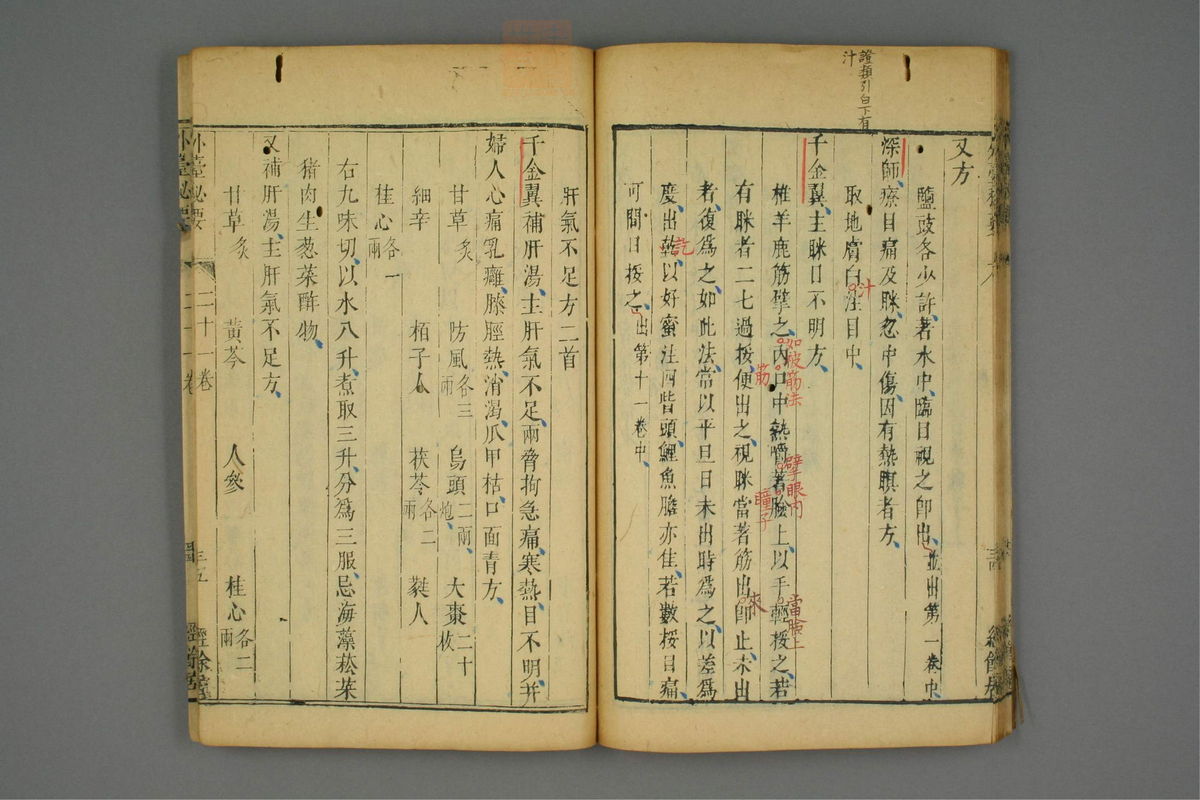 證類引白下有
汁
又方
鹽豉各少許著水中臨目視之卽出並出第一卷中
深師療目痛及眯忽中傷因有熱瞑者方
取地膚白汁注目中
千金翼主眯目不明方
椎羊鹿筋擘之如被筋法內筋口中熱嚼擘眼內著瞳子臉上當臉上以手輕挼之若
有眯者二七過挼便出之視眯當著筋出來卽止未出
者復爲之如此法常以平旦日未出時爲之以差爲
度出訖乾以好蜜注四眥頭鯉魚膽亦佳若數挼目痛
可間日挼之出第十一卷中
肝氣不足方二首
千金翼補肝湯主肝氣不足兩脅拘急痛寒熱目不明并
婦人心痛乳癰膝脛熱消渴爪甲枯口面青方
甘草炙 防風各三兩 烏頭二兩炮 大棗二十枚
細辛 栢子人 茯苓各二兩 蕤人
桂心各一兩
右九味切以水八升煮取三升分爲三服忌海藻菘菜
猪肉生葱菜酢物
又補肝湯主肝氣不足方
甘草炙 黃芩 人參 桂心各二兩
外臺秘要 二十一卷 三五 經餘居